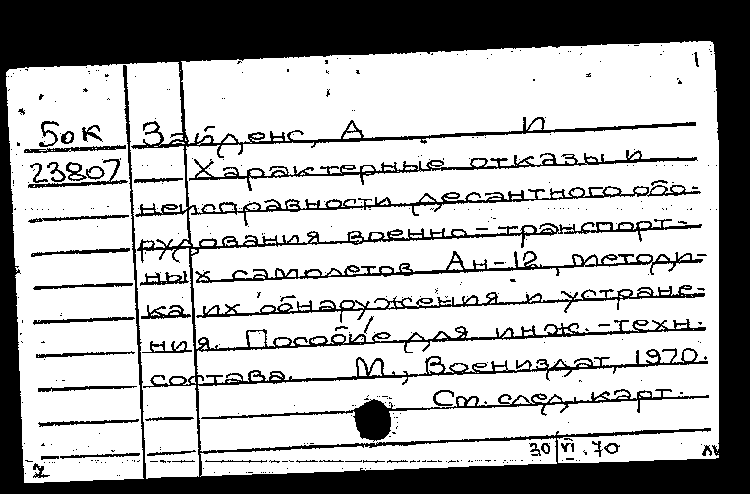 1
Бок Зайденс, А И
23807 Характерные отказы и
неисправности десантного обо-
рудования военно-транспорт-
ных самолетов Ан-12, методи-
ка их обнаружения и устране-
ния. Пособие для инж.-техн.
состава. М., Воениздат, 1970.
См. след. карт.
30/VI.70